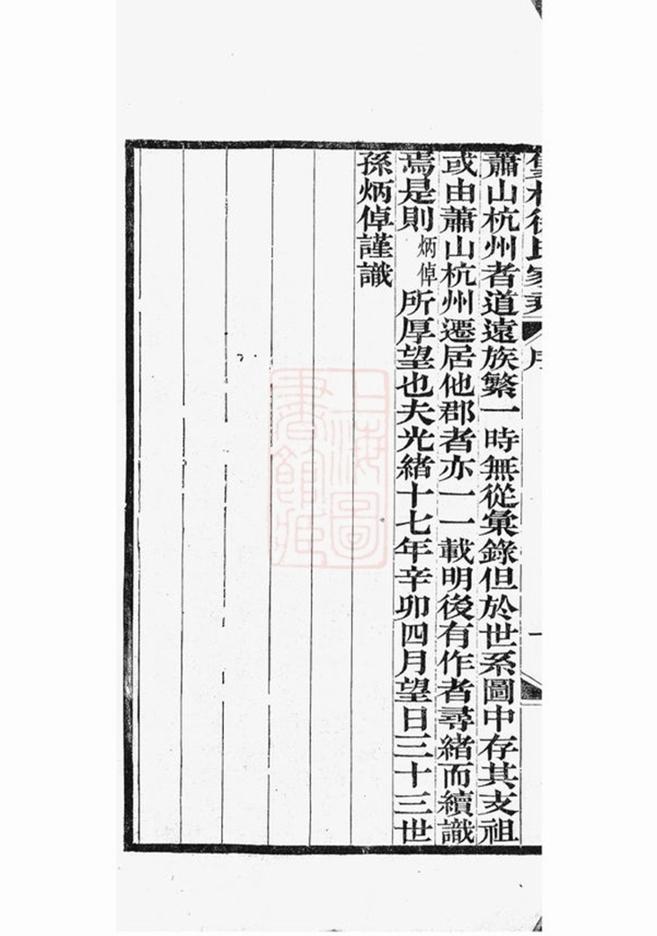 蕭山杭州者道遠族繁一時無從彙錄但於世系圖中存其支祖
或由蕭山杭州遷居他郡者亦一一載明後有作者尋緒而續識
焉是則炳倬所厚望也夫光緒十七年辛卯四月望日三十三世
孫炳倬謹識
上海圖
書館藏